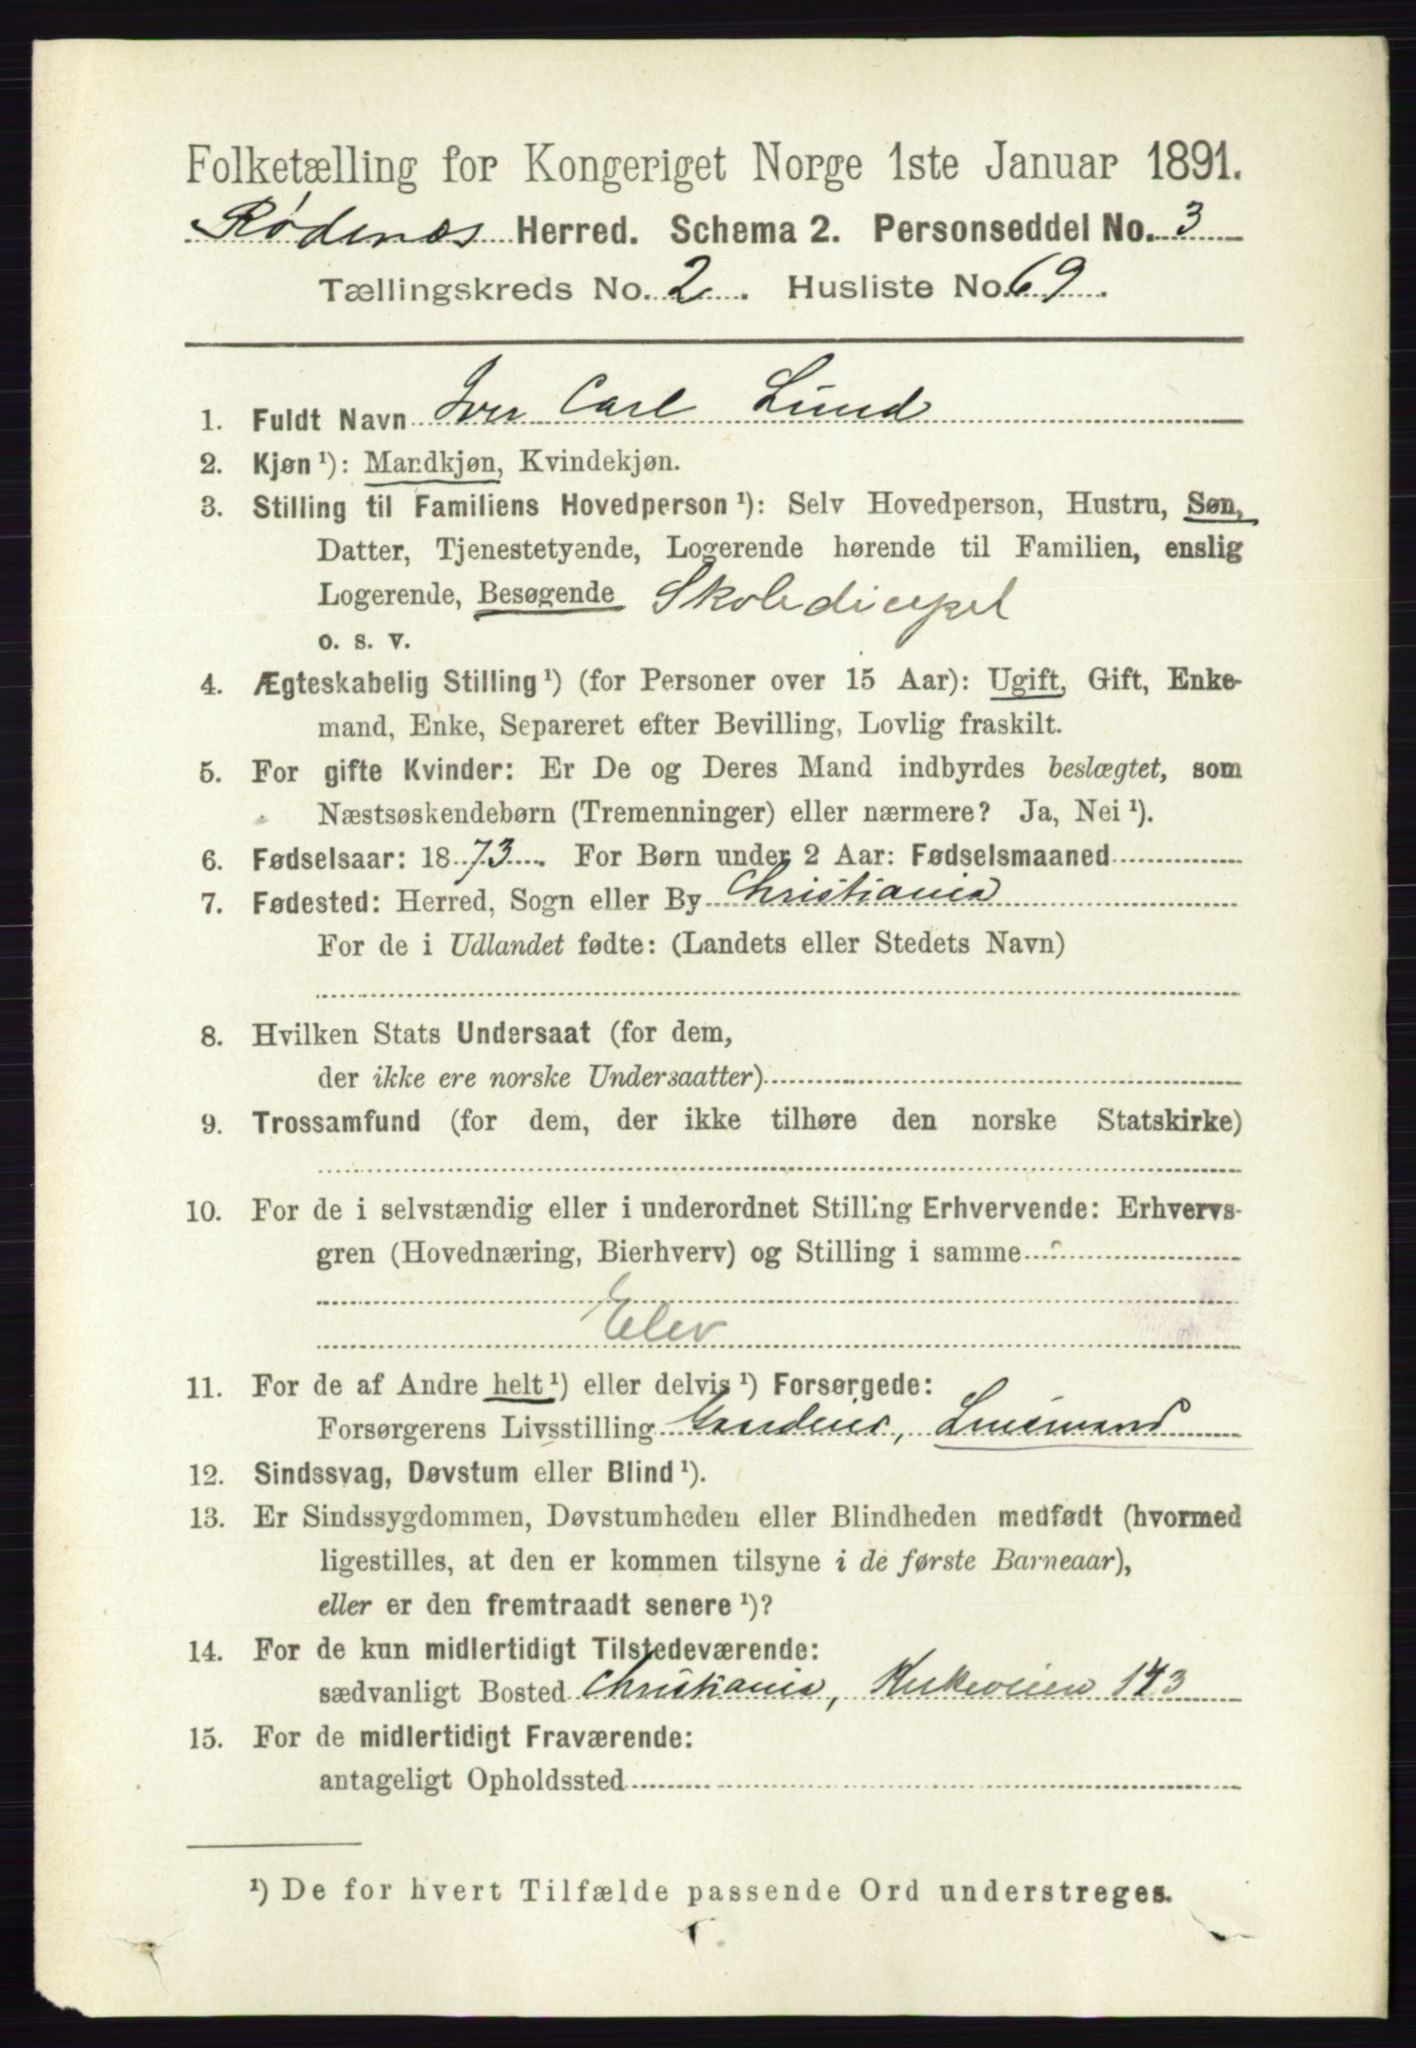 Folketælling for Kongeriget Norge 1ste Januar 1891.
Rødenæs Herred. Schema 2. Personseddel No. 3
Tællingskreds No. 2. Husliste No. 69.
1. Fuldt Navn Iver Carl Lund
2. Kjøn ¹): Mandkjøn, Kvindekjøn.
3. Stilling til Familiens Hovedperson ¹): Selv Hovedperson, Hustru, Søn,
Datter, Tjenestetyende, Logerende hørende til Familien, enslig
Logerende, Besøgende Skoledicipel
o. s. v.
4. Ægteskabelig Stilling ¹) (for Personer over 15 Aar): Ugift, Gift, Enke-
mand, Enke, Separeret efter Bevilling, Lovlig fraskilt.
5. For gifte Kvinder: Er De og Deres Mand indbyrdes beslægtet, som
Næstsøskendebørn (Tremenninger) eller nærmere? Ja, Nei ¹).
6. Fødselsaar: 1873. For Børn under 2 Aar: Fødselsmaaned
7. Fødested: Herred, Sogn eller By Christiania
For de i Udlandet fødte: (Landets eller Stedets Navn)
8. Hvilken Stats Undersaat (for dem,
der ikke ere norske Undersaatter)
9. Trossamfund (for dem, der ikke tilhøre den norske Statskirke)
10. For de i selvstændig eller i underordnet Stilling Erhvervende: Erhvervs-
gren (Hovednæring, Bierhverv) og Stilling i samme
Elev
11. For de af Andre helt ¹) eller delvis ¹) Forsørgede:
Forsørgerens Livsstilling
12. Sindssvag, Døvstum eller Blind ¹).
13. Er Sindssygdommen, Døvstumheden eller Blindheden medfødt (hvormed
ligestilles, at den er kommen tilsyne i de første Barneaar),
eller er den fremtraadt senere ¹)?
14. For de kun midlertidigt Tilstedeværende:
sædvanligt Bosted Christiania, Kirkeveien 143
15. For de midlertidigt Fraværende:
antageligt Opholdssted
¹) De for hvert Tilfælde passende Ord understreges.